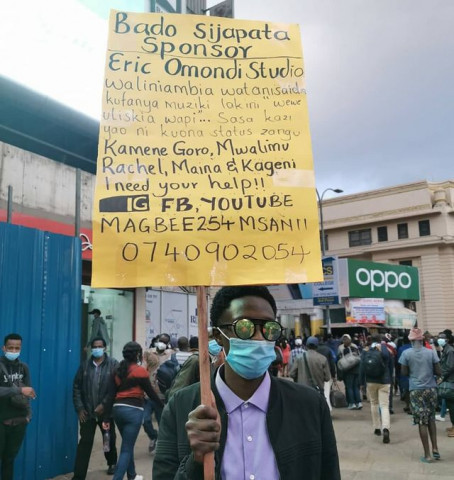 Bado Sijapata
Sponsor
Eric Omondi Studio
waliniambia watanisaidia
kufanya muziki lakini "wewe
uliskia wapi"... Sasa kazi
yao ni kuona status zangu
Kamene Goro, Mwalimu
Rachel, Maina & Kageni
I need your help!!
IG FB, YOUTUBE
MAGBEE254 MSANII
0740902054
oppo